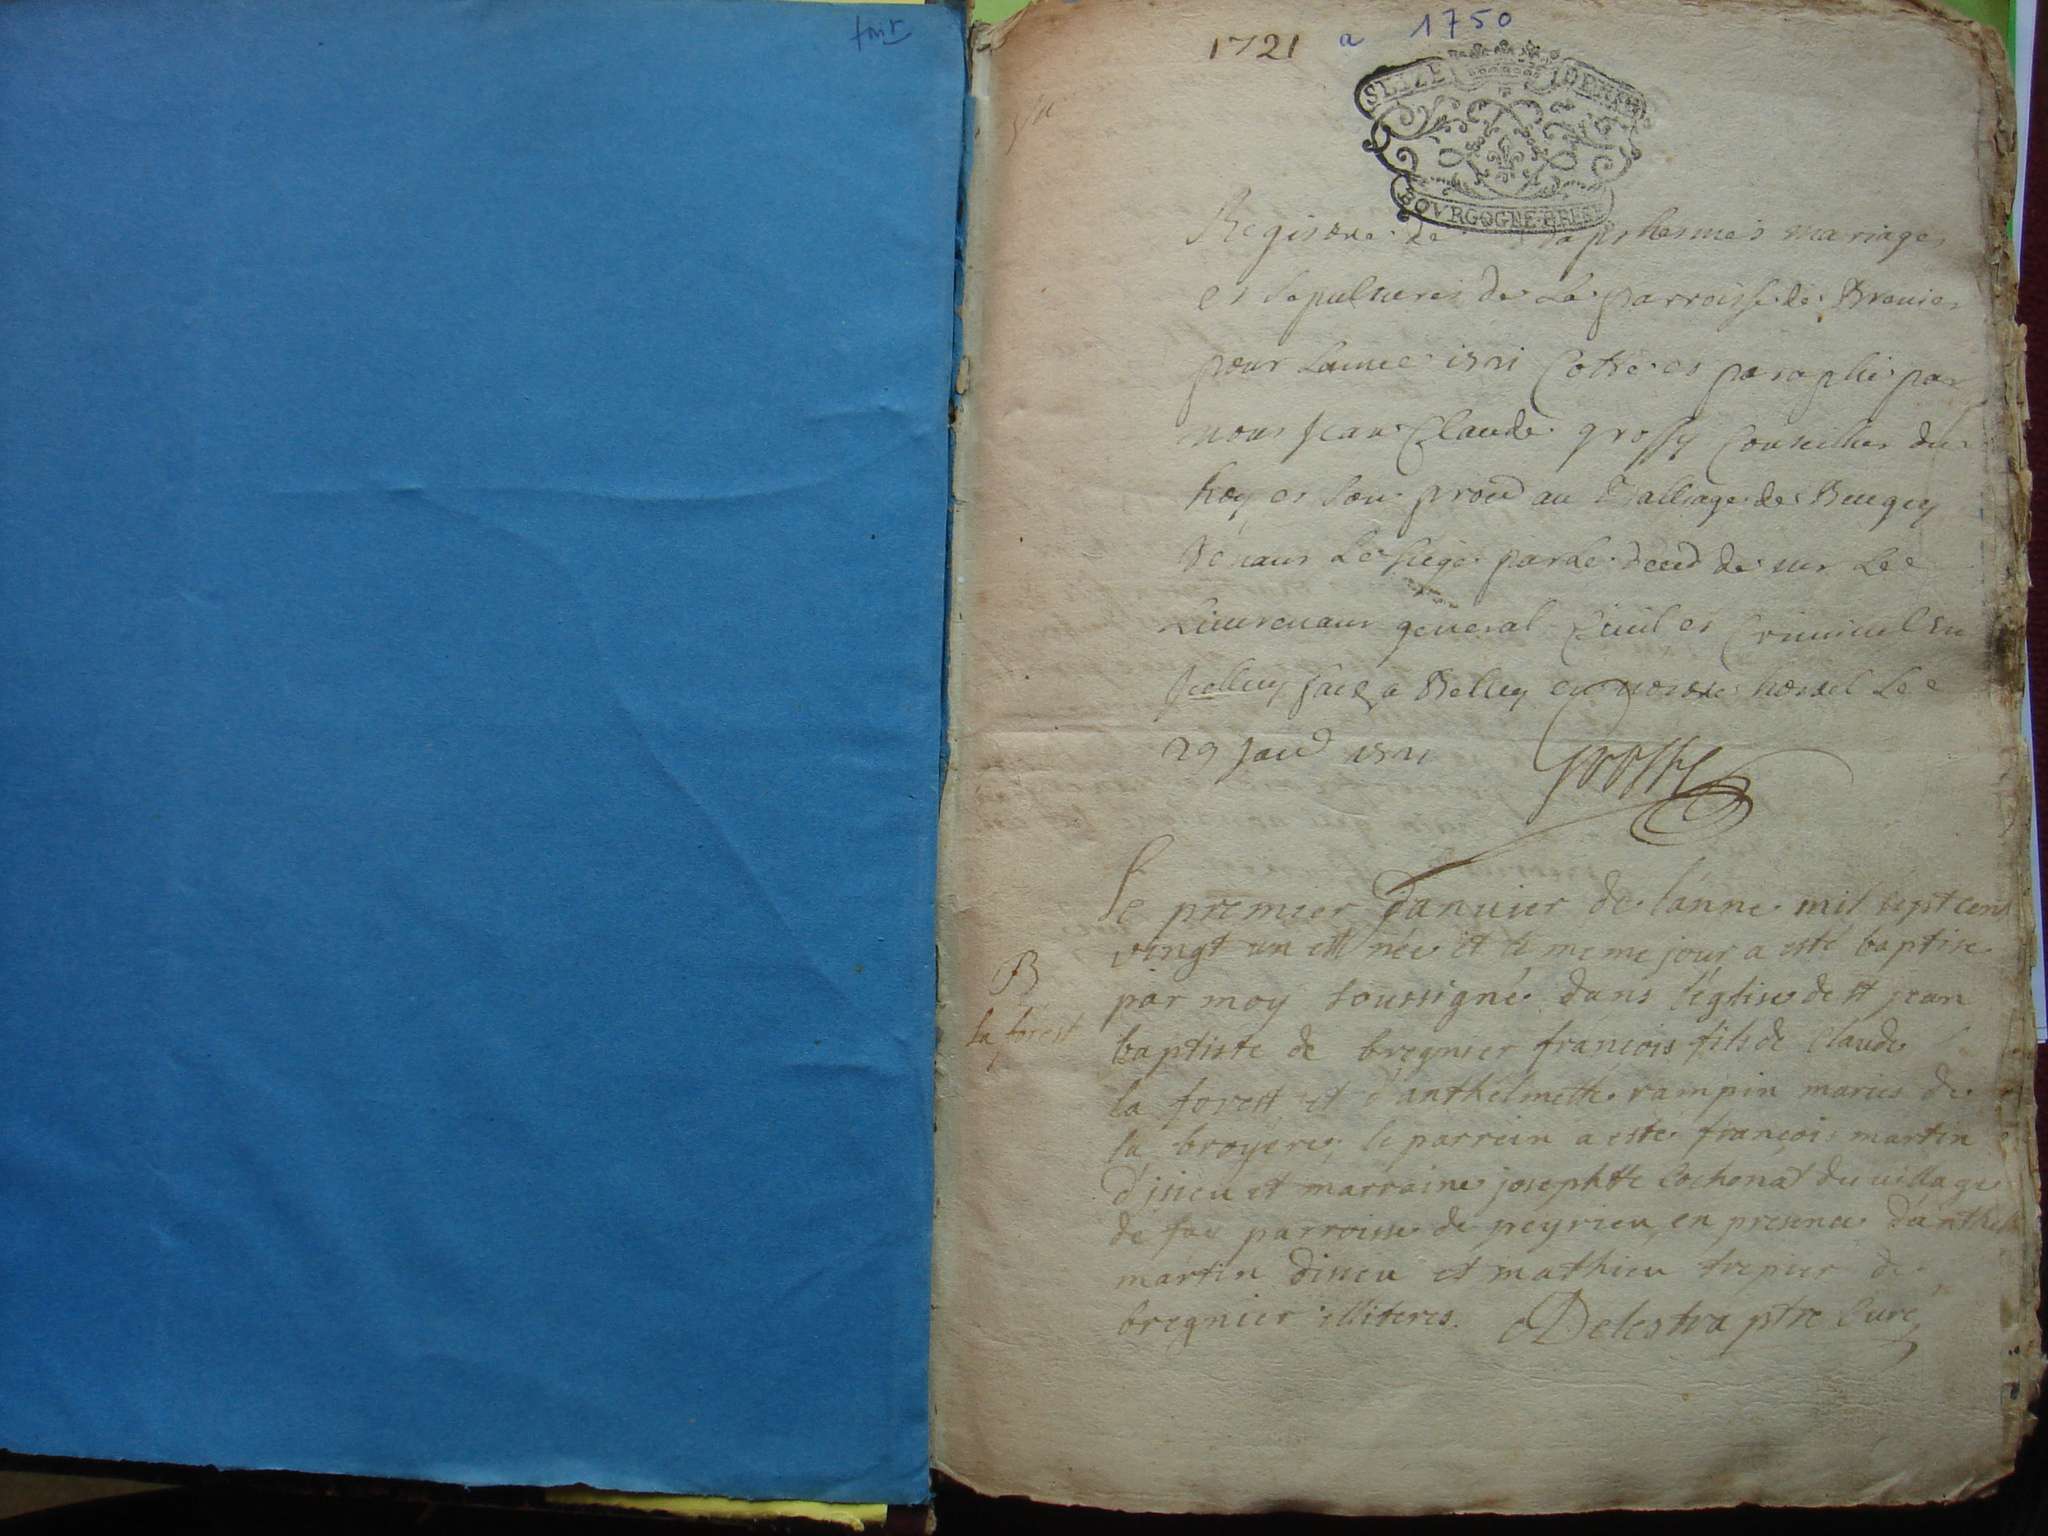 fait
1721 a 1750
SEIZE DENIERS
BOVRGOGNE BRESSE
Registre de baptesmes mariages
et sepultures de La parroisse de Brenier
pour Lannee 1721 Cotté et paraphé par
nous Jean Claude grossy Conseiller du
Roy et son au Balliage de Bugey
tenant Le siege par de mr Le
Lieutenant general Civil et Criminel en
Jcelluy fait a Belley en nostre hostel Le
29 Janv 1721 Grossy
Le premier Janvier de lánne mil sept cent
vingt un est née et le meme jour a esté baptise
B
par moy soussigné dans l'église de st jean
la forest
baptiste de bregnier francois fils de Claude
la forest et d'anthelmette rampin maries de
la broyere, le parrein a este françois martin
d'jsieu et marraine josephte Cochonat du village
de fay parroisse de peyrieu, en presence d'anthel
martin disieu et mathieu trepier de
bregnier illiteres. Delestra ptre Curé